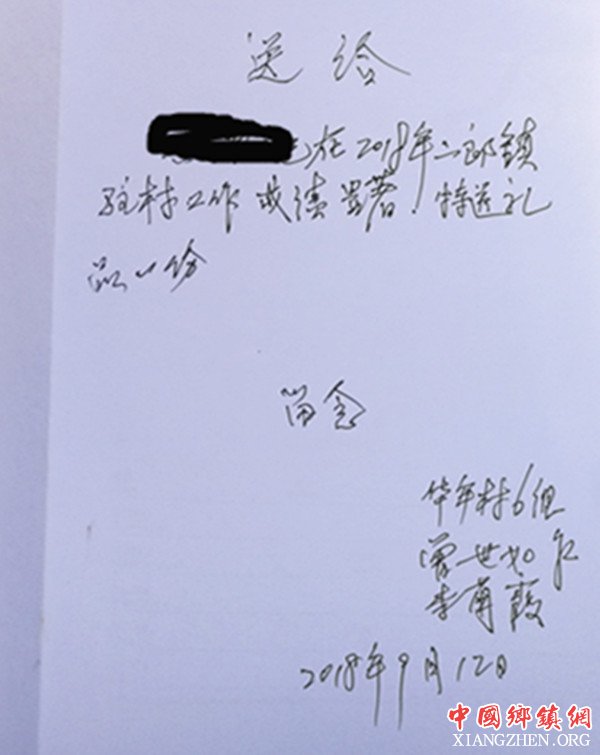 送给
在2018年二郎镇
驻村工作成绩显著.特送礼
品一份
留念
华年村6组
曾世如
李甫霞
2018年9月12日
中國鄉鎮網
XIANGZHEN.ORG